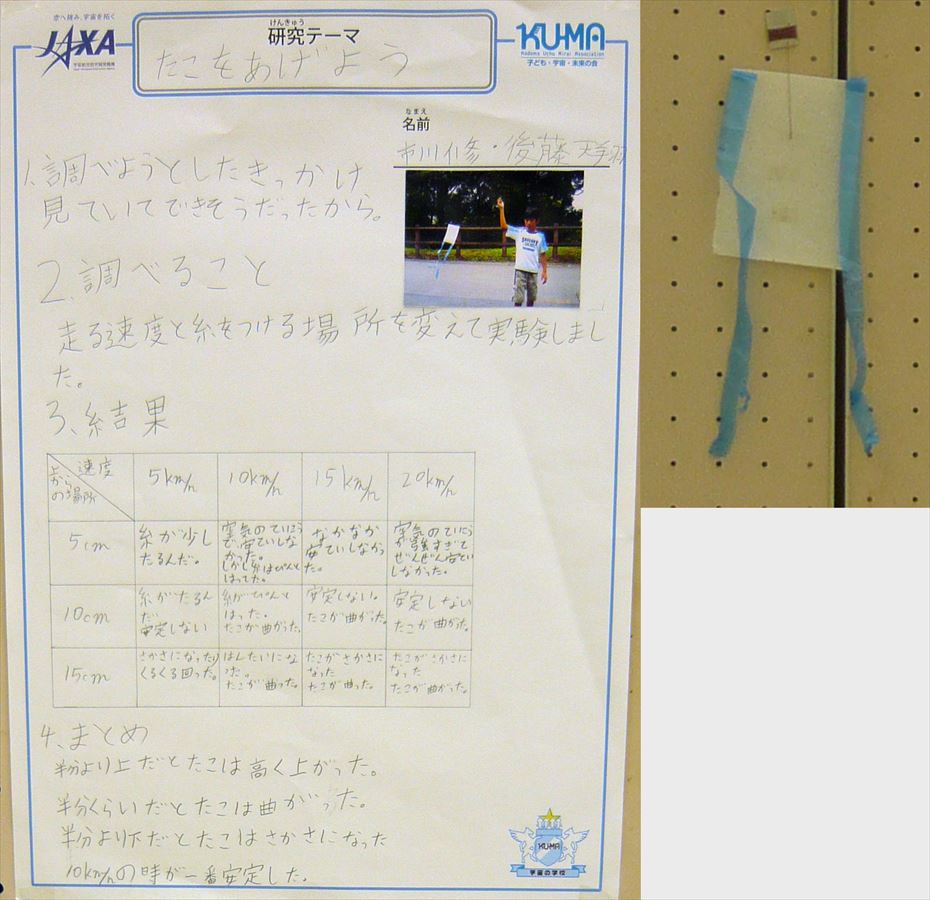 空へ挑み、宇宙を拓く
JAXA
けんきゅう
研究テーマ
たこをあげよう
KU-MA
Kodomo Uchu Mirai Association
子ども・宇宙・未来の会
なまえ
名前
市川修・後藤天翔
1.調べようとしたきっかけ
見ていてできそうだったから。
2.調べること
走る速度と糸をつける場所を変えて実験しまし
た。
3、結果
速度 上からの場所 5km/h 10km/h 15km/h 20km/h
5cm 糸が少したるんだ。 空気のていこうで安ていしなかった。しかし糸はぴんとはってた。 なかなか安ていしなかった。 空気のていこうが強すぎてぜんぜん安ていしなかった。
10cm 糸がたるんだ 安定しない 糸がぴんとはった。たこが曲がった。 安定しない。たこが曲がった。 安定しない たこが曲がった。
15cm さかさになったりくるくる回った。 はんたいになった。たこが曲った。 たこがさかさになった たこが曲った。 たこがさかさになった たこが曲がった。
4、まとめ
半分より上だとたこは高く上がった。
半分くらいだとたこは曲がった。
半分より下だとたこはさかさになった
10km/hの時が一番安定した。
KU-MA
宇宙の学校